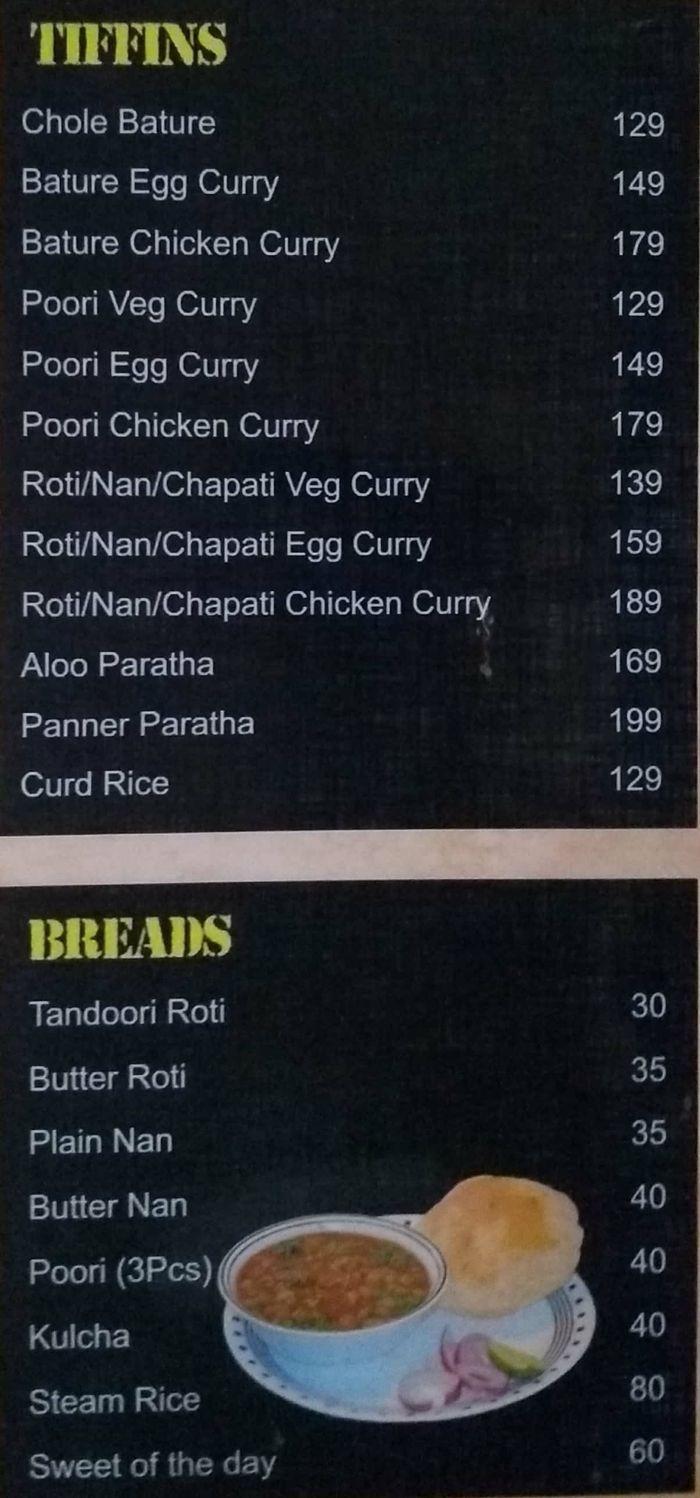 TIFFINS
Chole Bature 129
Bature Egg Curry 149
Bature Chicken Curry 179
Poori Veg Curry 129
Poori Egg Curry 149
Poori Chicken Curry 179
Roti/Nan/Chapati Veg Curry 139
Roti/Nan/Chapati Egg Curry 159
Roti/Nan/Chapati Chicken Curry 189
Aloo Paratha 169
Panner Paratha 199
Curd Rice 129
BREADS
Tandoori Roti 30
Butter Roti 35
Plain Nan 35
Butter Nan 40
Poori (3Pcs) 40
Kulcha 40
Steam Rice 80
Sweet of the day 60